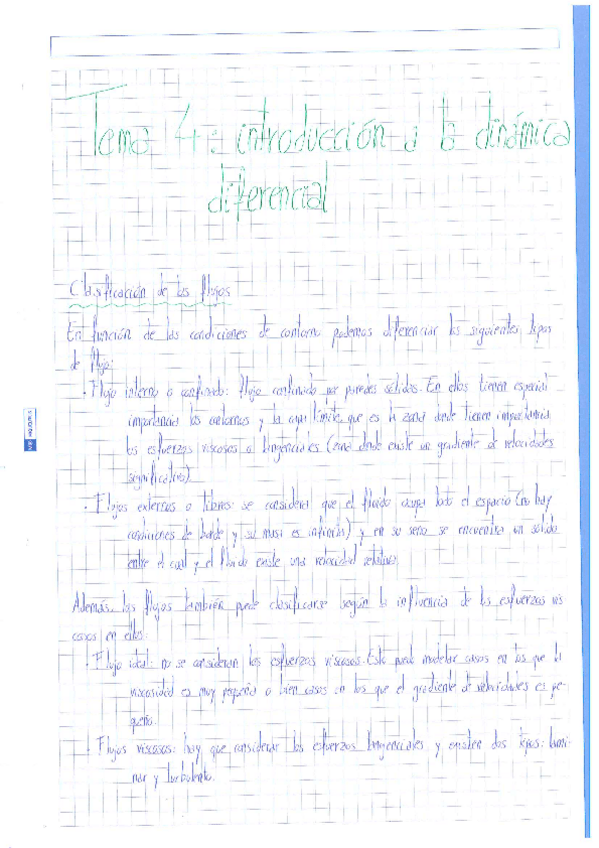 Tema 4: introducción a la dinámica
diferencial
Clasificación de los flujos
En función de las condiciones de contorno podemos diferenciar los siguientes tipos
de flujo:
· Flujo interno o confinado: flujo confinado por paredes sólidas. En ellos tienen especial
importancia los contornos y la capa límite, que es la zona donde tienen importancia
los esfuerzos viscosos o tangenciales (zona donde existe un gradiente de velocidades
significativo)
· Flujos externos o libres: se considera que el fluido ocupa todo el espacio (no hay
condiciones de borde y su masa es infinita) y en su seno se encuentra un sólido
entre el cual y el fluido existe una velocidad relativa.
Además, los flujos también puede clasificarse según la influencia de los esfuerzos vis
cosos en ellos:
· Flujo ideal: no se consideran los esfuerzos viscosos. Esto puede modelar casos en los que la
viscosidad es muy pequeña o bien casos en los que el gradiente de velocidades es pe-
queño.
· Flujos viscosos: hay que considerar los esfuerzos tangenciales y existen dos tipos: lami-
nar y turbulento.